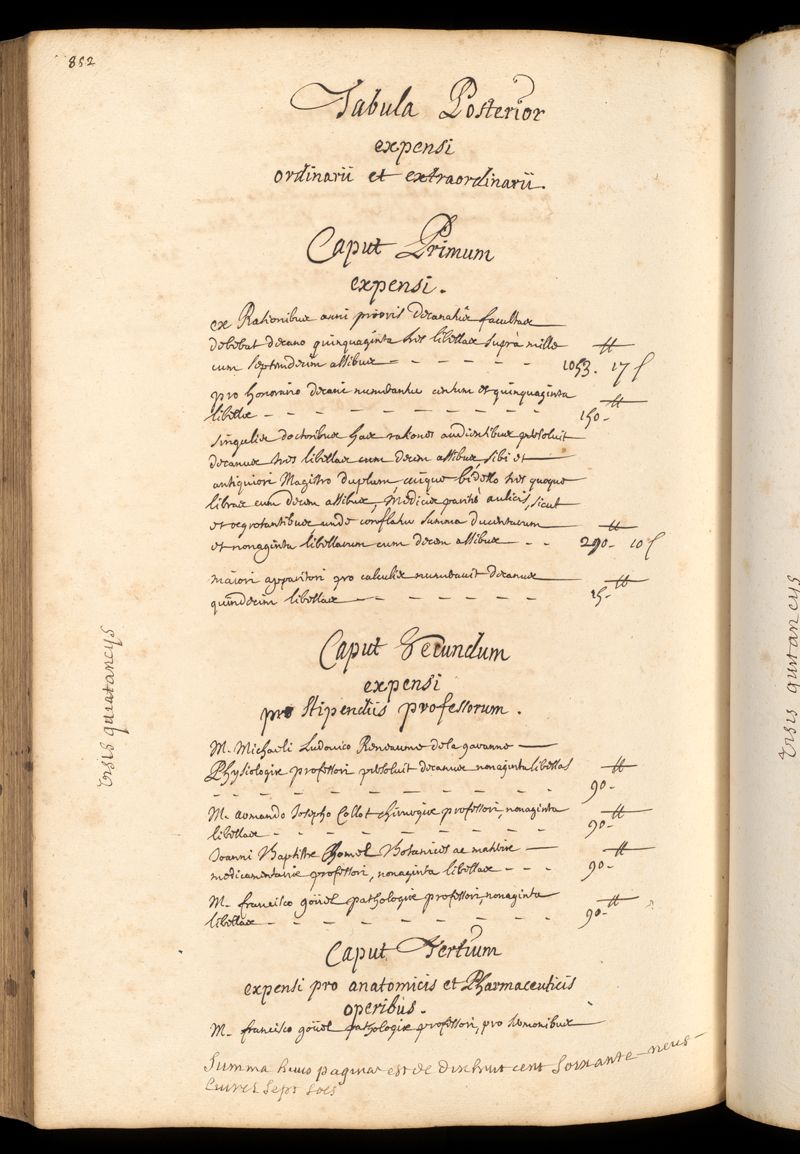 852
Tabula Posterior
expensi
ordinarii et extraordinarii.
Caput Primum
expensi.
ex Rationibus anni prioris decanatus facultas
debebat decano quinquaginta tres libellas suprà mille
cum septemdecim assibus - - - - - 1053.tt 17 ſ
pro honorario decani numerantur centum et quinquaginta
libellæ - - - - - - - - - - 150-tt
singulis doctoribus has rationes audientibus persoluit
decanus tres libellas cum decem assibus, sibi et
antiquiori Magistro duplum, cuique bidello tres quoque
libras cum decem assibus, Medicis pariter aulicis, sicut
et ægrotantibus unde conflatur summa ducentarum
et nonaginta libellarum cum decem assibus - - 290-tt 10 ſ
maiori apparitori pro calculis numerauit decanus
quindecim libellas - - - - - - 15-tt
Caput Secundum
expensi
pro Stipendiis professorum.
M. Michaeli Ludovico Reneaume de la garanne
Physiologiæ professori persoluit decanus nonaginta libellas
- - - - - - - - - - 90-tt
M. armando Josepho Collot chirurgiæ professori, nonaginta
libellas - - - - - - - - 90-tt
Joanni Baptistæ Chomel Botanices ac materiæ
medicamentariæ professori, nonaginta libellas - - - 90-tt
M. francisco goüel pathologiæ professori, nonaginta
libellas - - - - - - - - 90-tt
Caput Tertium
expensi pro anatomicis et Pharmaceuticis
operibus.
M. francisco goüel pathologiæ professori, pro sermonibus
Summa huius paginæ est de dixhuit cent soixante-neuf
livres sept sols
Visis quitancys
Visis quitancys